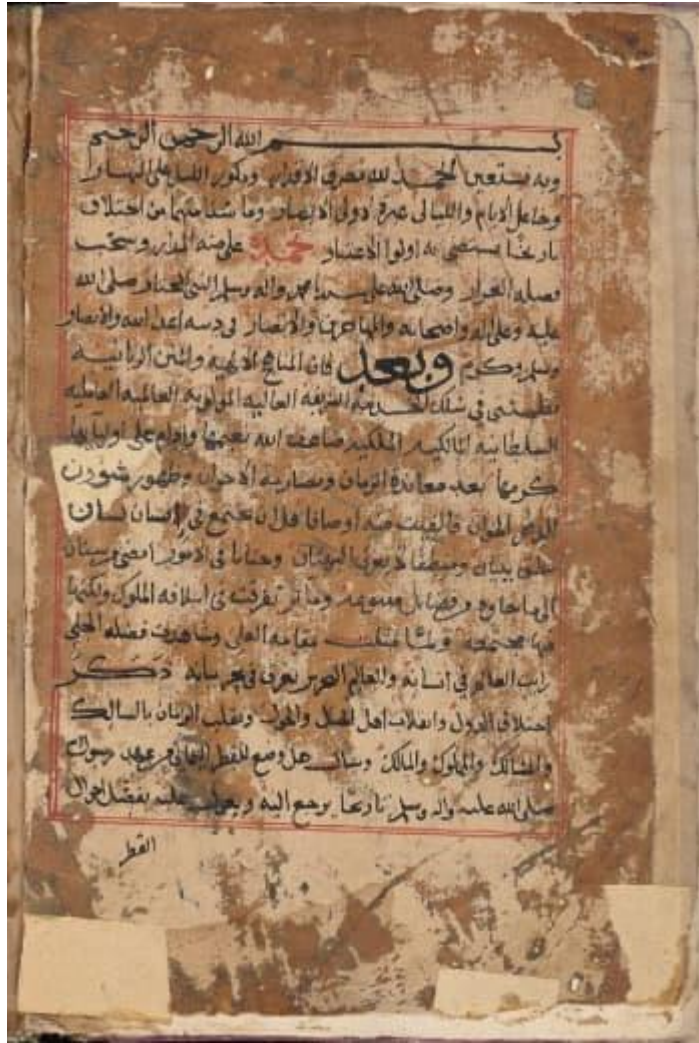 بسم الله الرحمن الرحيم
وبه نستعين الحمد لله مصرف الاقدار ومكور الليل على النهار
وجاعل الايام والليالي عبرة لاولي الابصار وما شا منهما من اختلاف
تاريخا يستضي به اولوا الاعتبار نحمده على منه المدرار وسحب
فضله الغزار وصلى الله على سيدنا محمد واله وسلم النبي المختار صلى الله
عليه وعلى اله واصحابه والمهاجرين والانصار في دينه اعداء الله والانصار
وسلم وكرم وبعد فان المناهج الالهية والمنن الربانية
نظمتني في سلك الخدمة الشريفه العاليه المولويه العالميه العامليه
السلطانيه المالكيه الملكيه ضاعف الله نعيمها وادام على اوليايها
كرمها بعد معاندة الزمان ومضاربة الاحزان وظهور شؤون
الهوان فالفيت منه اوصافا قل ان تجتمع في انسان لسان
ينطق ببيان ومنطقا البرهان وجنانا في الامور امضى من سنان
الى ما حاوله من فضايل وماثر تفرقت في اسلافه الملوك ولكنها
فيها مجتمعة ولما مثلت مقامه العالي وشاهدت فضله الجلي
رايت العالم في انسانه والعالم النحرير يغرق في بحر بيانه ذكر
اختلاف الدول وانقلاب اهل الخيل والخول وتقلب الزمان بالسالك
والمسالك والمملوك والمالك وسال هل وضع للقطر اليماني من عهد رسول
صلى الله عليه واله وسلم تاريخا يرجع اليه ويعول عليه بفضل احوال
القطر